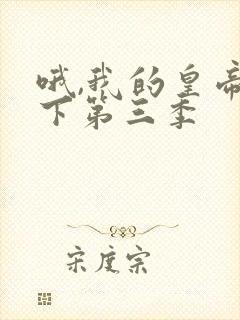 哦,我的皇帝
下第三季
宋度宗